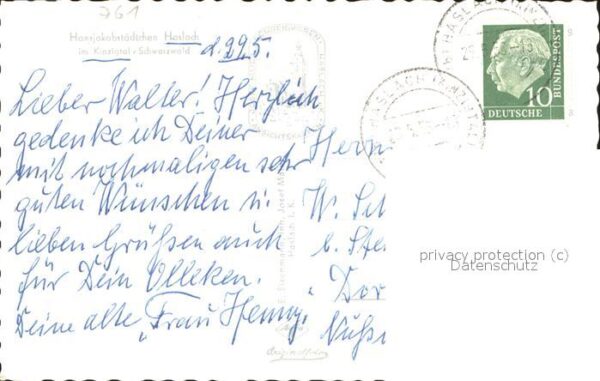 761
Hansjakobstädtchen Haslach
im Kinzigtal - Schwarzwald
d. 22.5.
Lieber Walter! Herzlich
gedenke ich Deiner
mit nochmaligen sehr
guten Wünschen u.
lieben Grüßen auch
für Dein Ulleken.
Deine alte „Frau Henny"
Herrn
W. Sch
b. Ste
Dor
Nußs
HASLACH
HASLACH
DEUTSCHE
BUNDESPOST
10
privacy protection (c)
Datenschutz